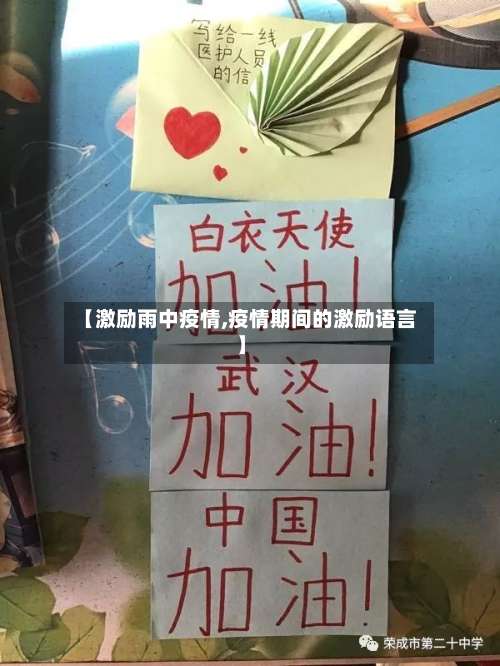 写给一线
医护人员
的信
白衣天使
加油!
【激励雨中疫情,疫情期间的激励语言
】
武汉
加油!
中国
加油!
荣成市第二十中学